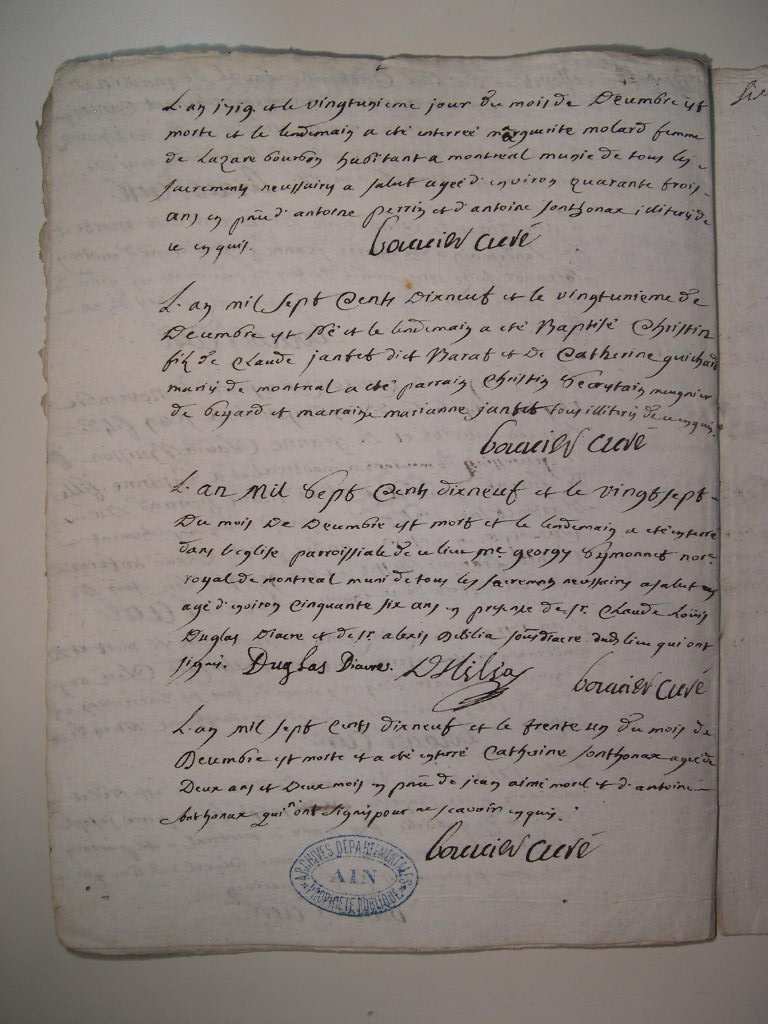 L'an 1719. et le vingtunieme jour du mois de Decembre est
morte et le lendemain a eté interreé marguerite molard femme
de Lazare bourbon habitant a montreal munie de tous les
sacremens necessairs a salut ageé d'environ quarante trois
ans en pñce d'antoine perrin et d'antoine sonthonax illiterés de
ce enquis. bouvier curé
L'an mil sept Cents Dixneuf et le vingtunieme de
Decembre est né et le lendemain a eté Baptisé Christin
fils de Claude jantet dict Barat et De Catherine guichard
mariés de montreal a eté parrain Christin meugnier
de beyard et marraine marianne jantet tous illiterés de ce enquis.
bouvier curé
L'an Mil sept Cents dixneuf et le vingtsept
Du mois De Decembre est mort et le lendemain a eté interré
dans l'eglise parroissiale de ce lieu me georgy symonnet nore
royal de montreal muni de tous les sacremens necessairs a salut
agé d'environ Cinquante six ans en presense de sr. Claude Loüis
Duglas Diacre et de sr alexis Delilia sousdiacre dud. lieu qui ont
signés. Duglas Diacre. Delilia bouvier curé
L'an mil sept Cents dixneuf et le trente un du mois de
Decembre est morte et a eté enterré Catherine sonthonax ageé de
Deux ans et Deux mois en pñce de jean aimé morel et d'antoine
sonthonax qui n'ont signés pour ne scavoir enquis.
bouvier curé
ARCHIVES DÉPARTEMENTALES
AIN
PROPRIÉTÉ PUBLIQUE